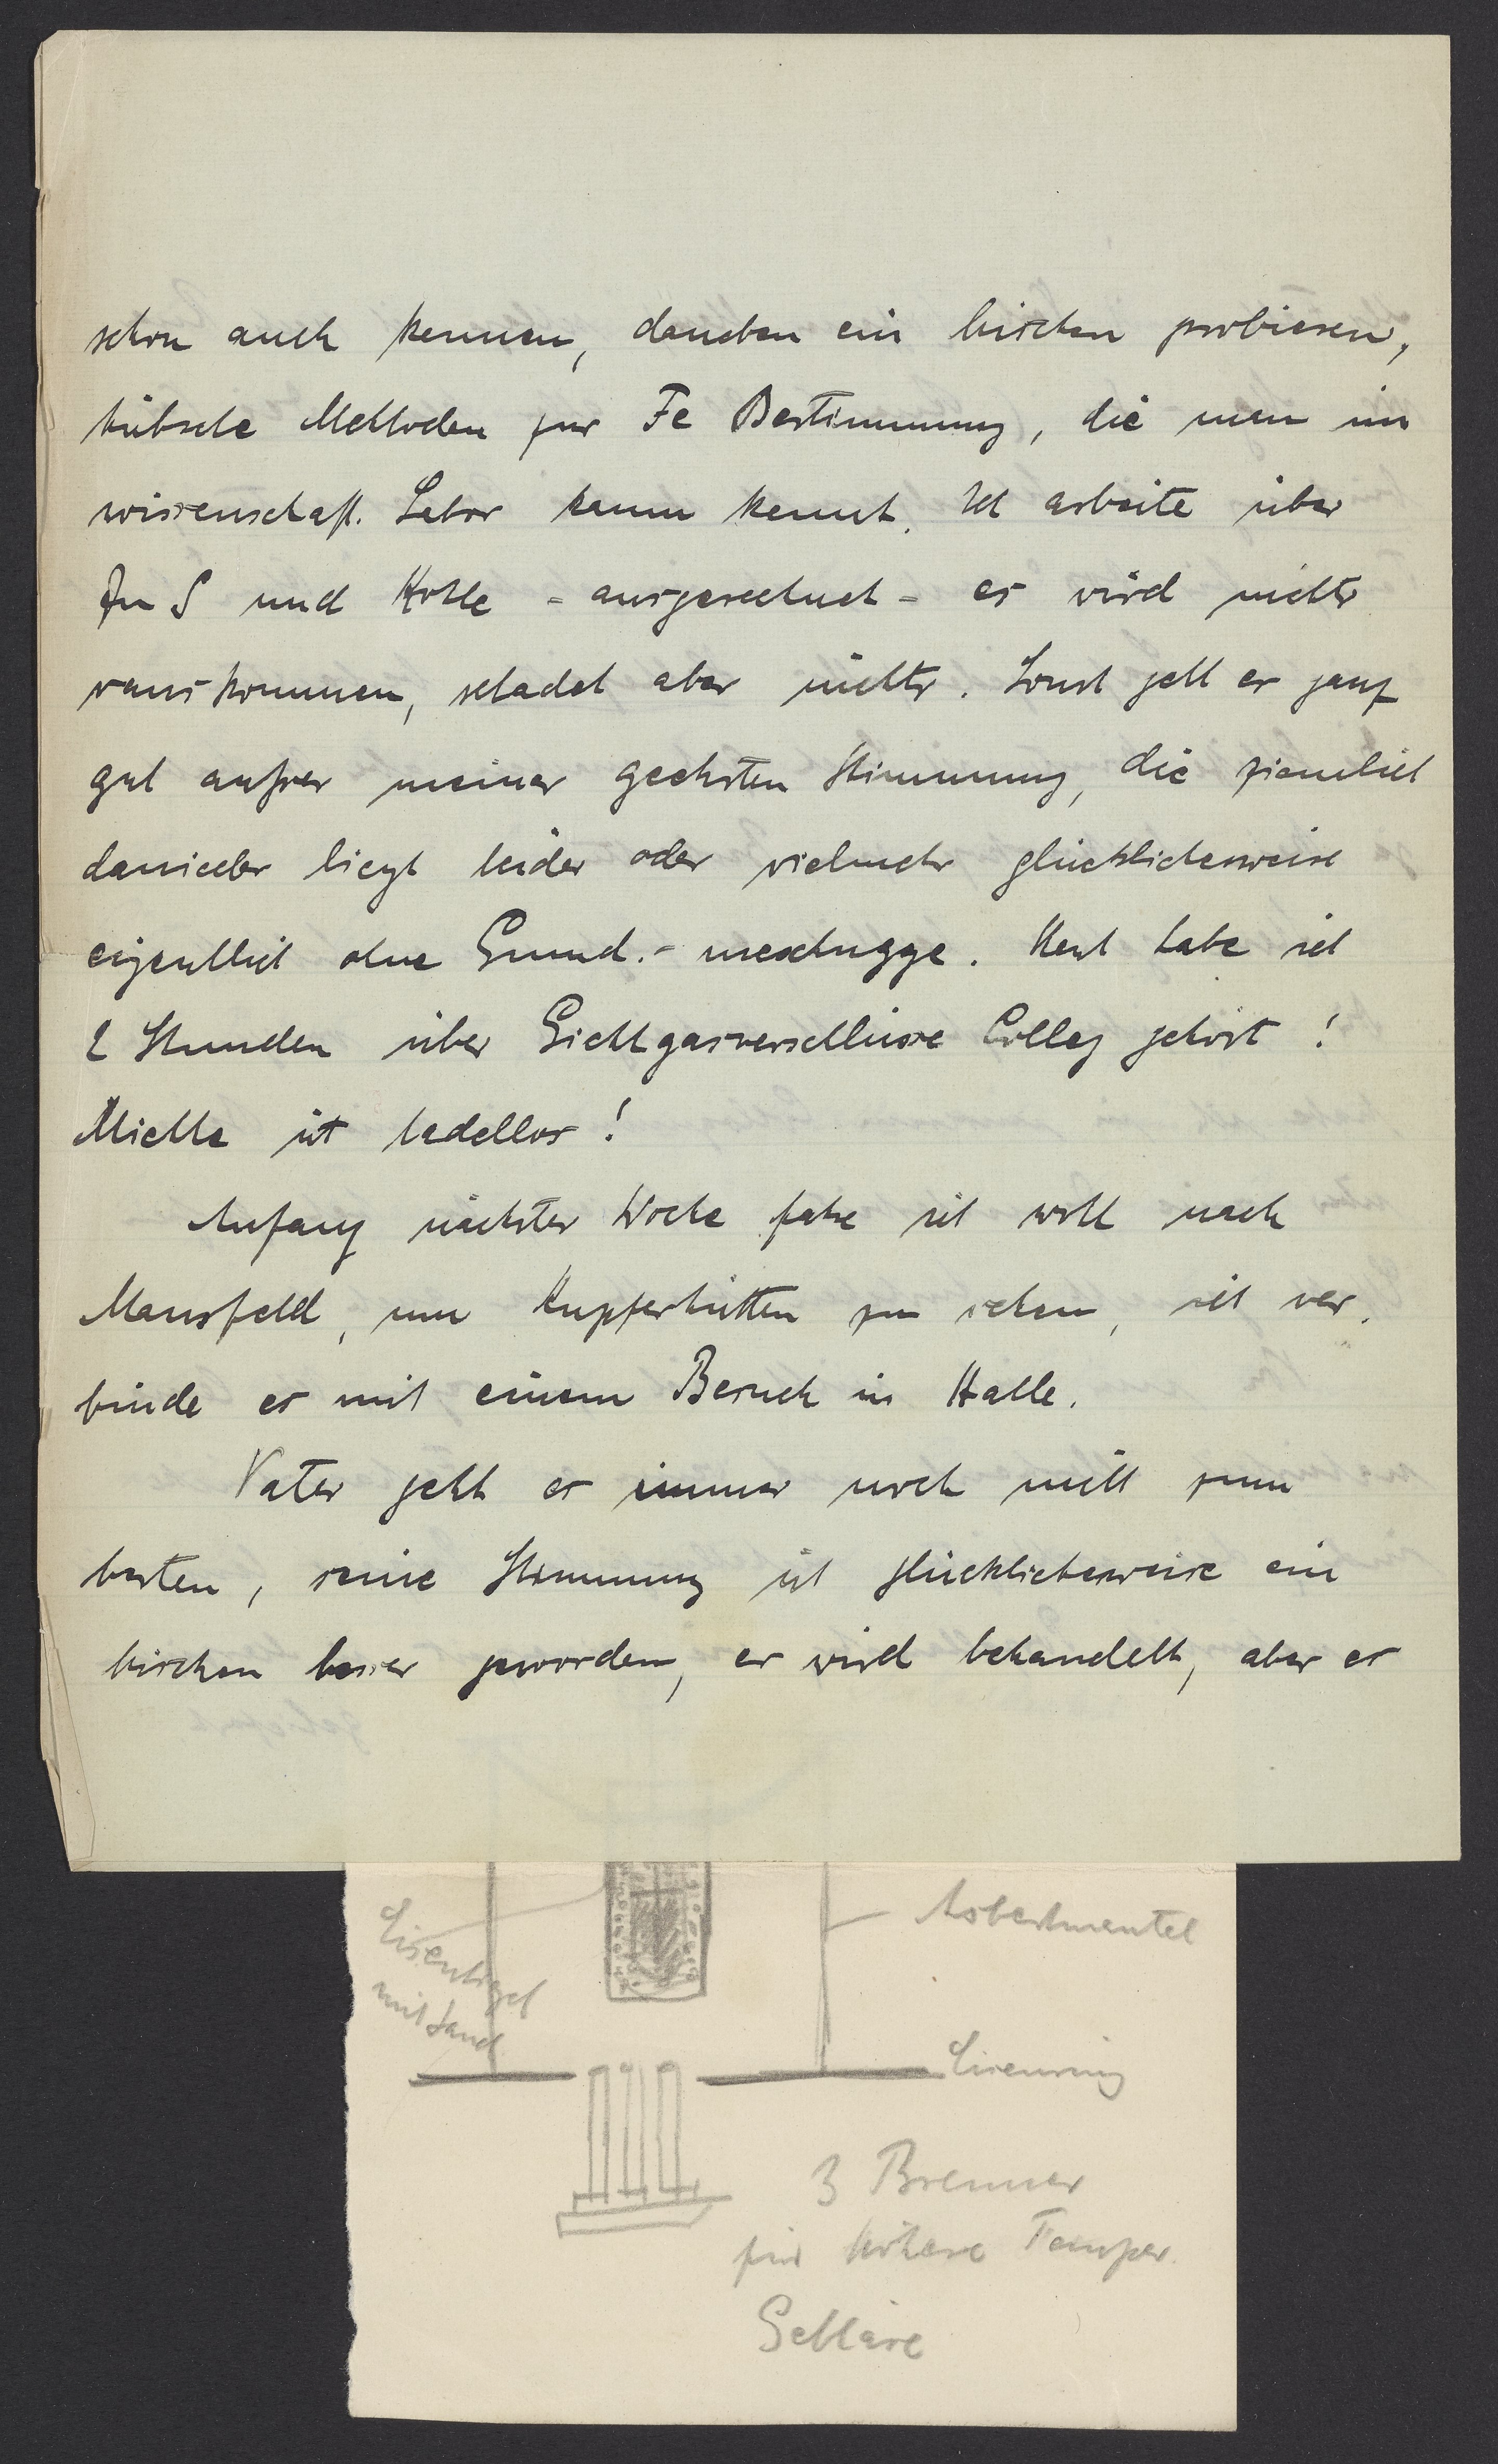 schon auch kennen, daneben ein bischen probieren,
hübsche Methoden zur Fe Bestimmung, die man im
wissenschaft. Labor kaum kennt. Ich arbeite über
Zn S und Kohle - ausgerechnet - es wird nichts
rauskommen, schadet aber nichts. Sonst geht es ganz
gut ausser meiner geehrten Stimmung, die ziemlich
danieder liegt leider oder vielmehr glücklicherweise
eigentlich ohne Grund. - meschugge. Heut habe ich
2 Stunden über Gichtgasverschlüsse Colleg gehört!
Miethe ist tadellos!
Anfang nächster Woche fahre ich wohl nach
Mansfeld, um Kupferhütten zu sehen, ich ver-
binde es mit einem Besuch in Halle.
Vater geht es immer noch nicht zum
besten, seine Stimmung ist glücklicherweise ein
bischen besser geworden, er wird behandelt, aber er
Asbestmantel
Eisentiegel
mit Sand
Eisenring
3 Brenner
für höhere Temper.
Gebläse